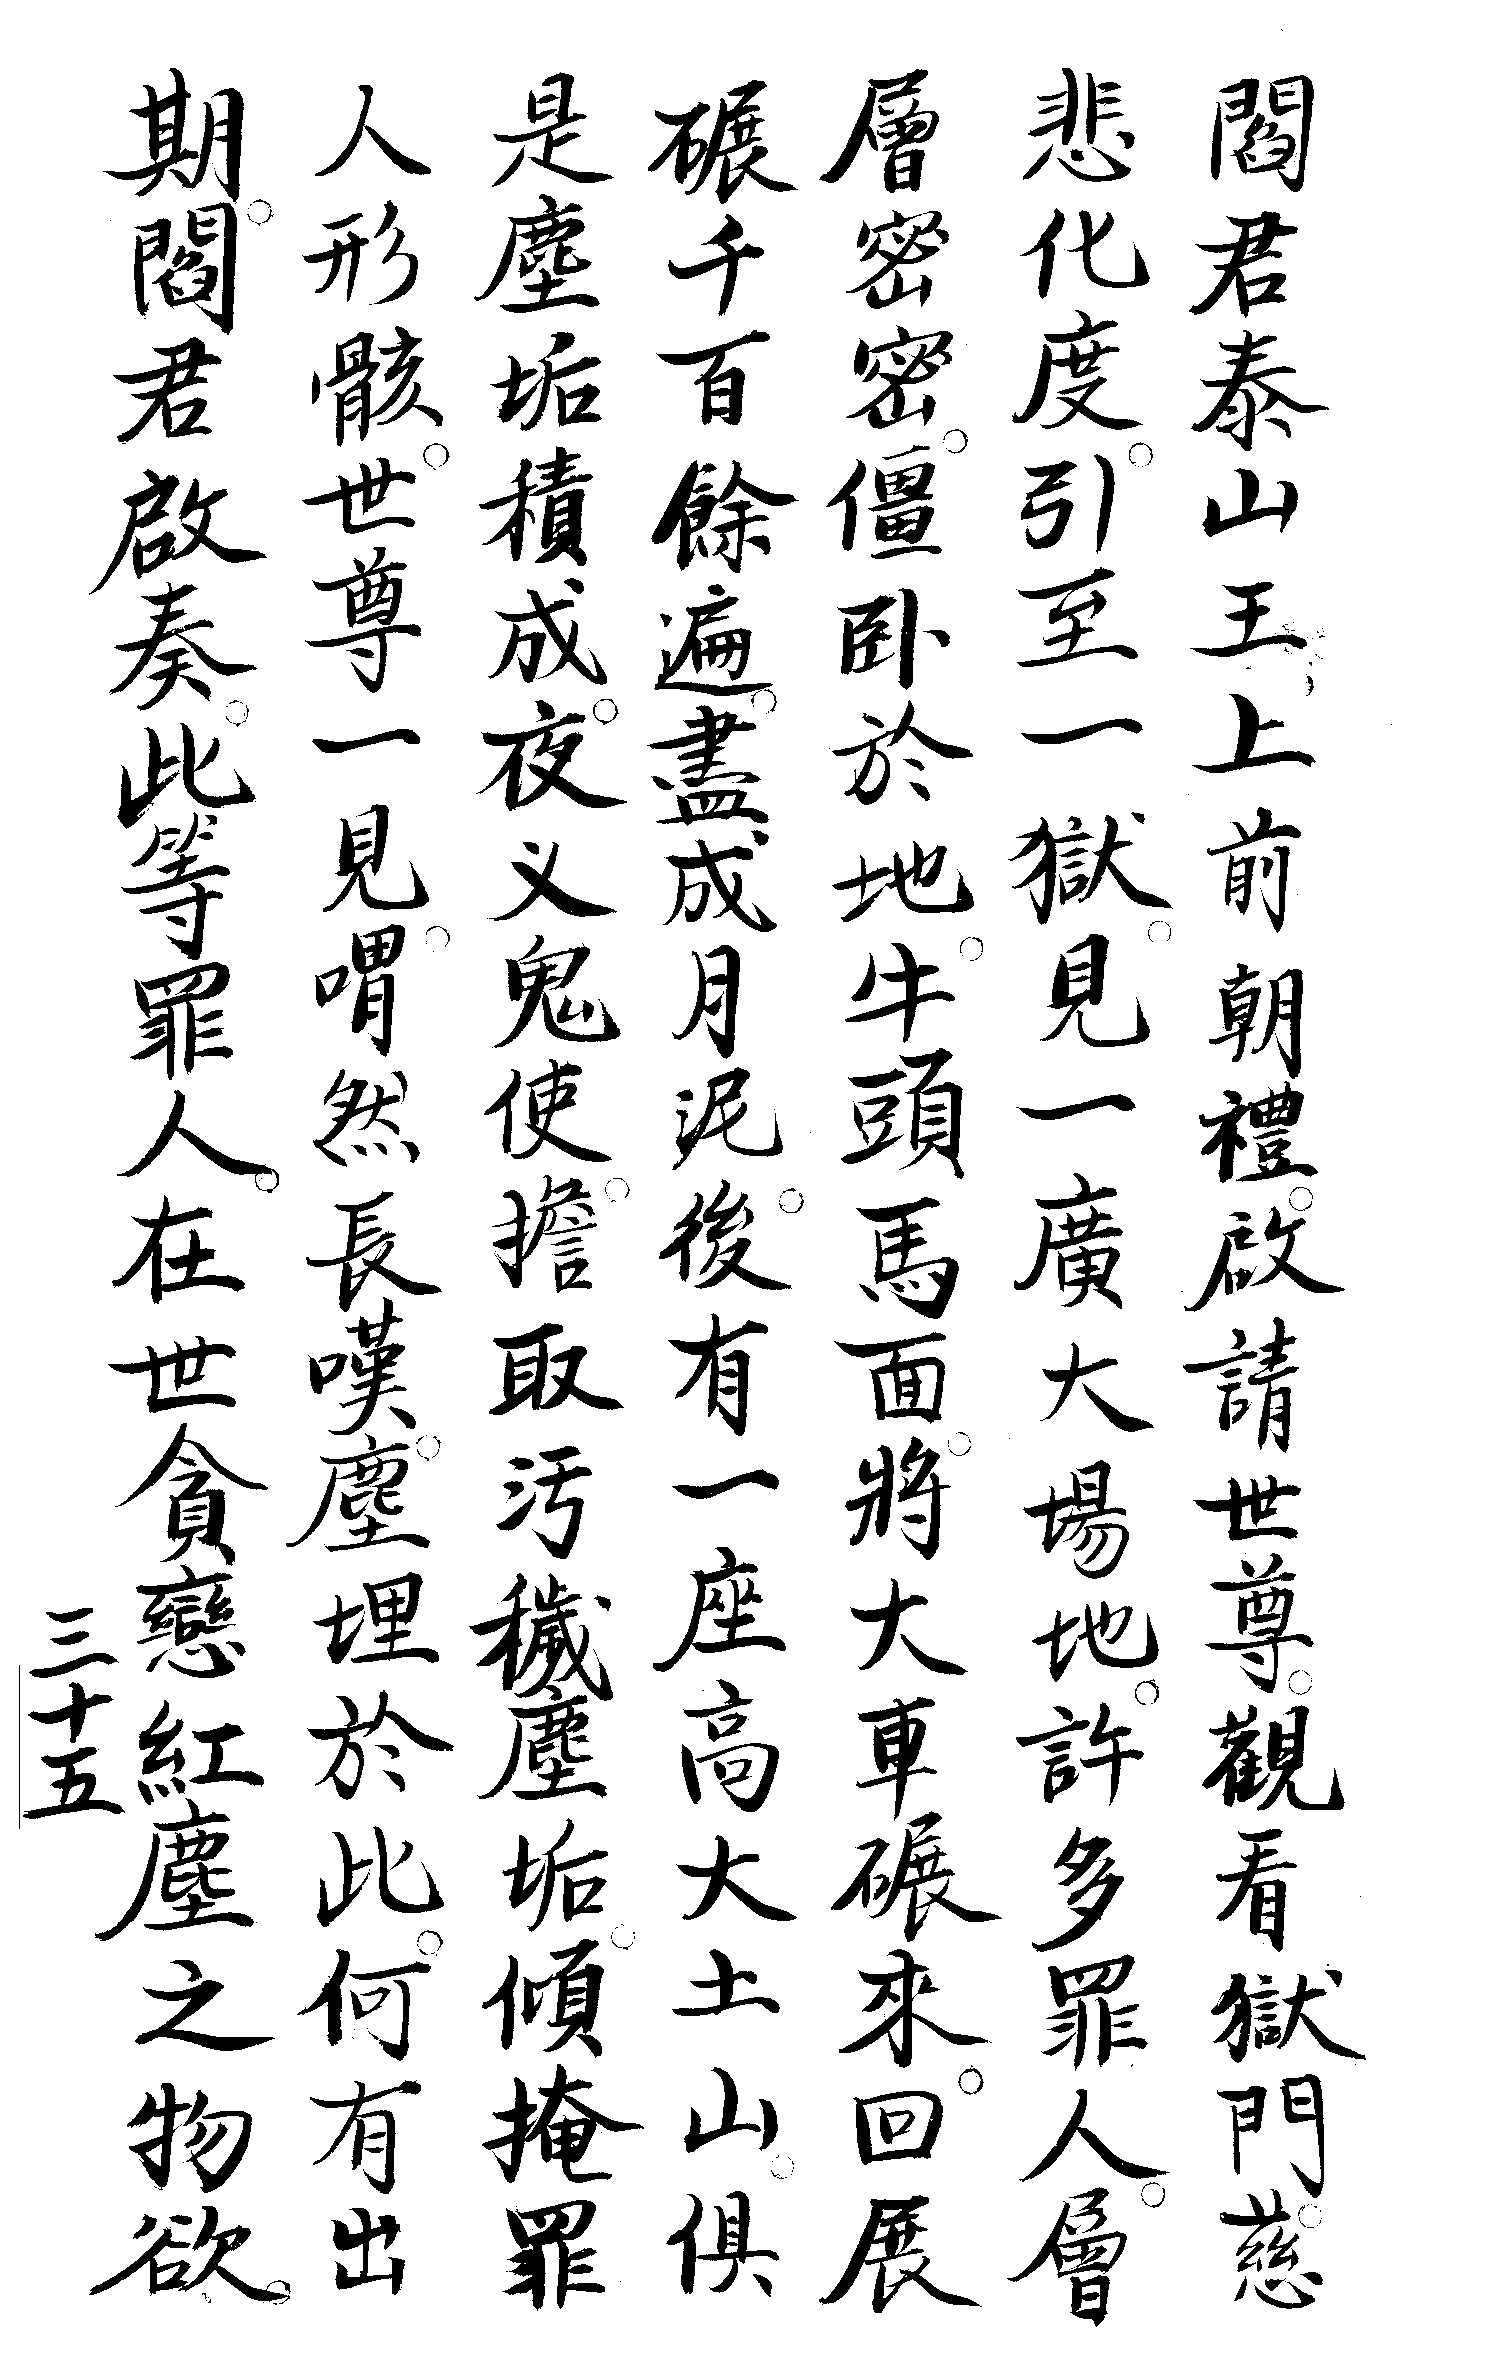 閻君泰山王上前朝禮。啟請世尊。觀看獄門。慈
悲化度。引至一獄。見一廣大場地。許多罪人。層
層密密。僵卧於地。牛頭馬面。將大車碾來。回展
碾千百餘遍。盡成月泥。後有一座高大土山。俱
是塵垢積成。夜义鬼使。擔取污穢塵垢。傾掩罪
人形骸。世尊一見。喟然長嘆。塵埋於此。何有出
期。閻君啟奏。此等罪人。在世貪戀紅塵之物欲。
三十五